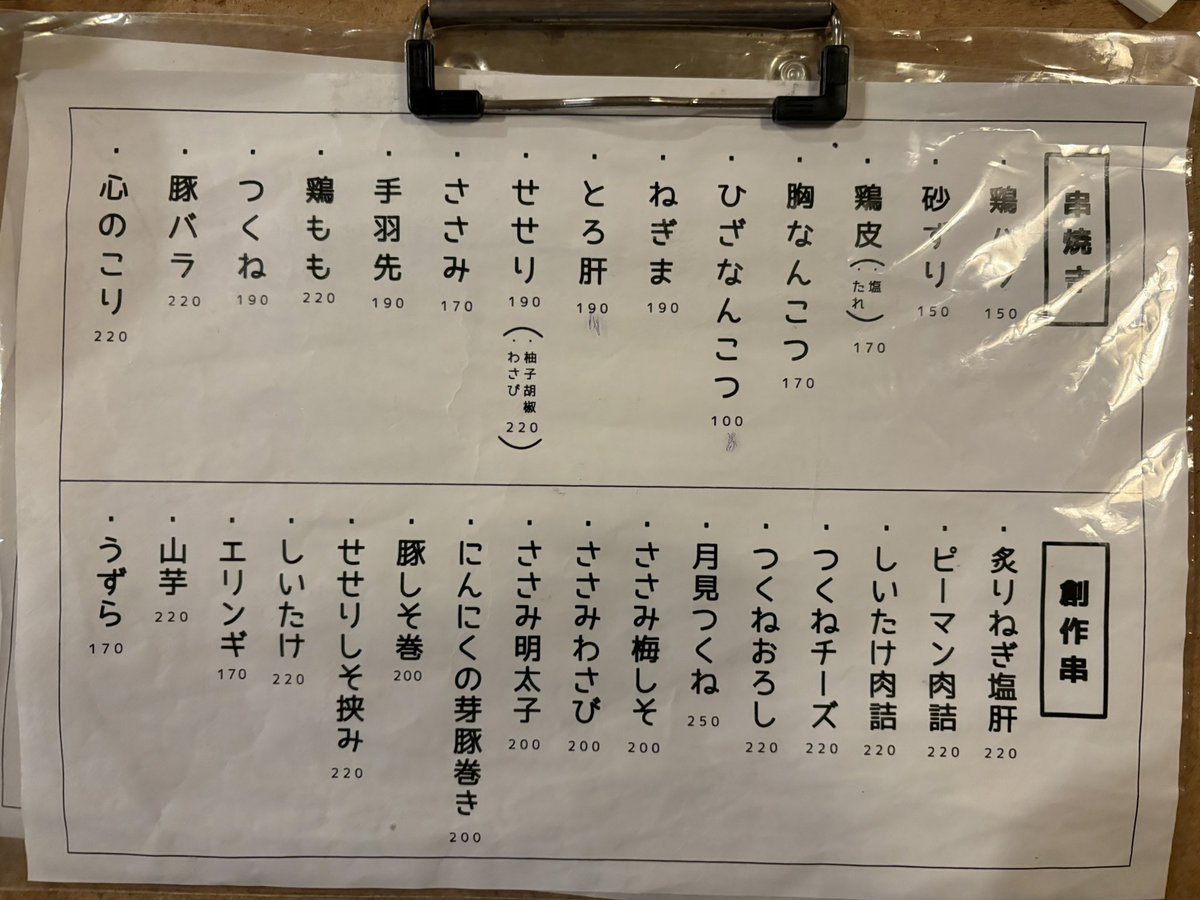 串焼き
・鶏ハツ 150
・砂ずり 150
・鶏皮(・塩 ・たれ) 170
・胸なんこつ 170
・ひざなんこつ 100
・ねぎま 190
・とろ肝 190
・せせり 190 (・柚子胡椒 ・わさび 220)
・ささみ 170
・手羽先 190
・鶏もも 220
・つくね 190
・豚バラ 220
・心のこり 220
創作串
・炙りねぎ塩肝 220
・ピーマン肉詰 220
・しいたけ肉詰 220
・つくねチーズ 220
・つくねおろし 220
・月見つくね 250
・ささみ梅しそ 200
・ささみわさび 200
・ささみ明太子 200
・にんにくの芽豚巻き 200
・豚しそ巻 200
・せせりしそ挟み 220
・しいたけ 220
・エリンギ 170
・山芋 220
・うずら 170